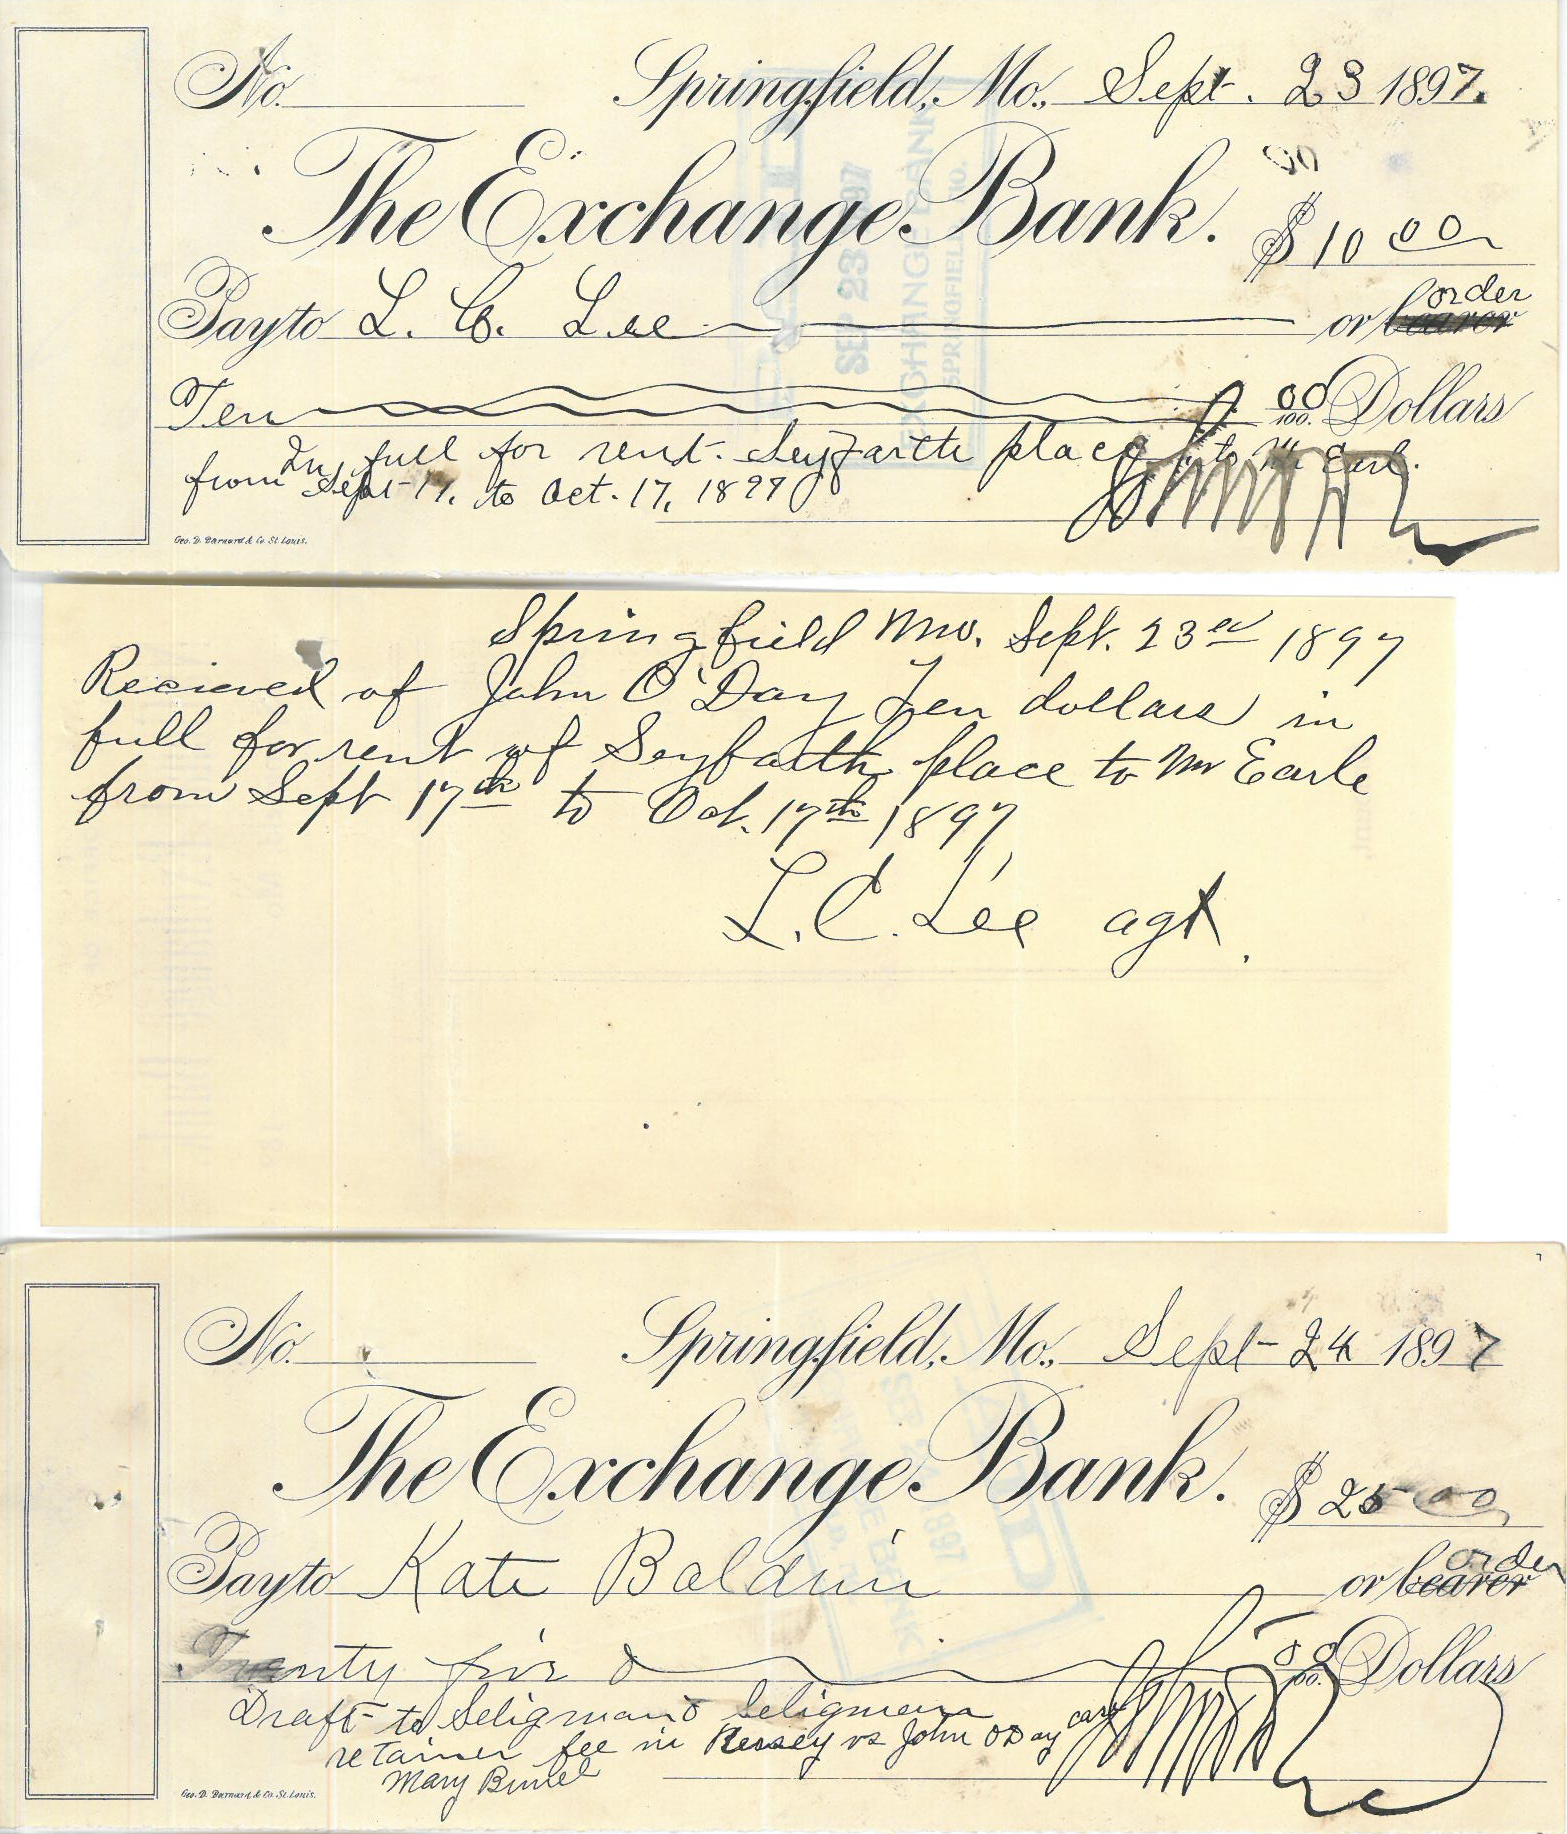 No. Springfield, Mo., Sept. 23 1897.
The Exchange Bank. $ 10 00
Pay to L. C. Lee or bearer order
Ten 00/100. Dollars
In full for rent. Seyfarth place to Mr Earl.
from Sept 17. to Oct. 17, 1897
Geo. D. Barnard & Co. St. Louis.
SEP 23 97
EXCHANGE BANK
SPRINGFIELD, MO.
Springfield Mo. Sept. 23rd 1897
Recieved of John O'Day Ten dollars in
full for rent of Seyfarth place to Mr Earle
from Sept 17th to Oct. 17th 1897
L. C. Lee agt.
No. Springfield, Mo., Sept 24 1897
The Exchange Bank. $ 25 00
Pay to Kate Baldwin or bearer order
Twenty five 00/100. Dollars
Draft to Seligman & Seligman
retainer fee in Kersey vs John O Day case
Mary
Geo. D. Barnard & Co. St. Louis.